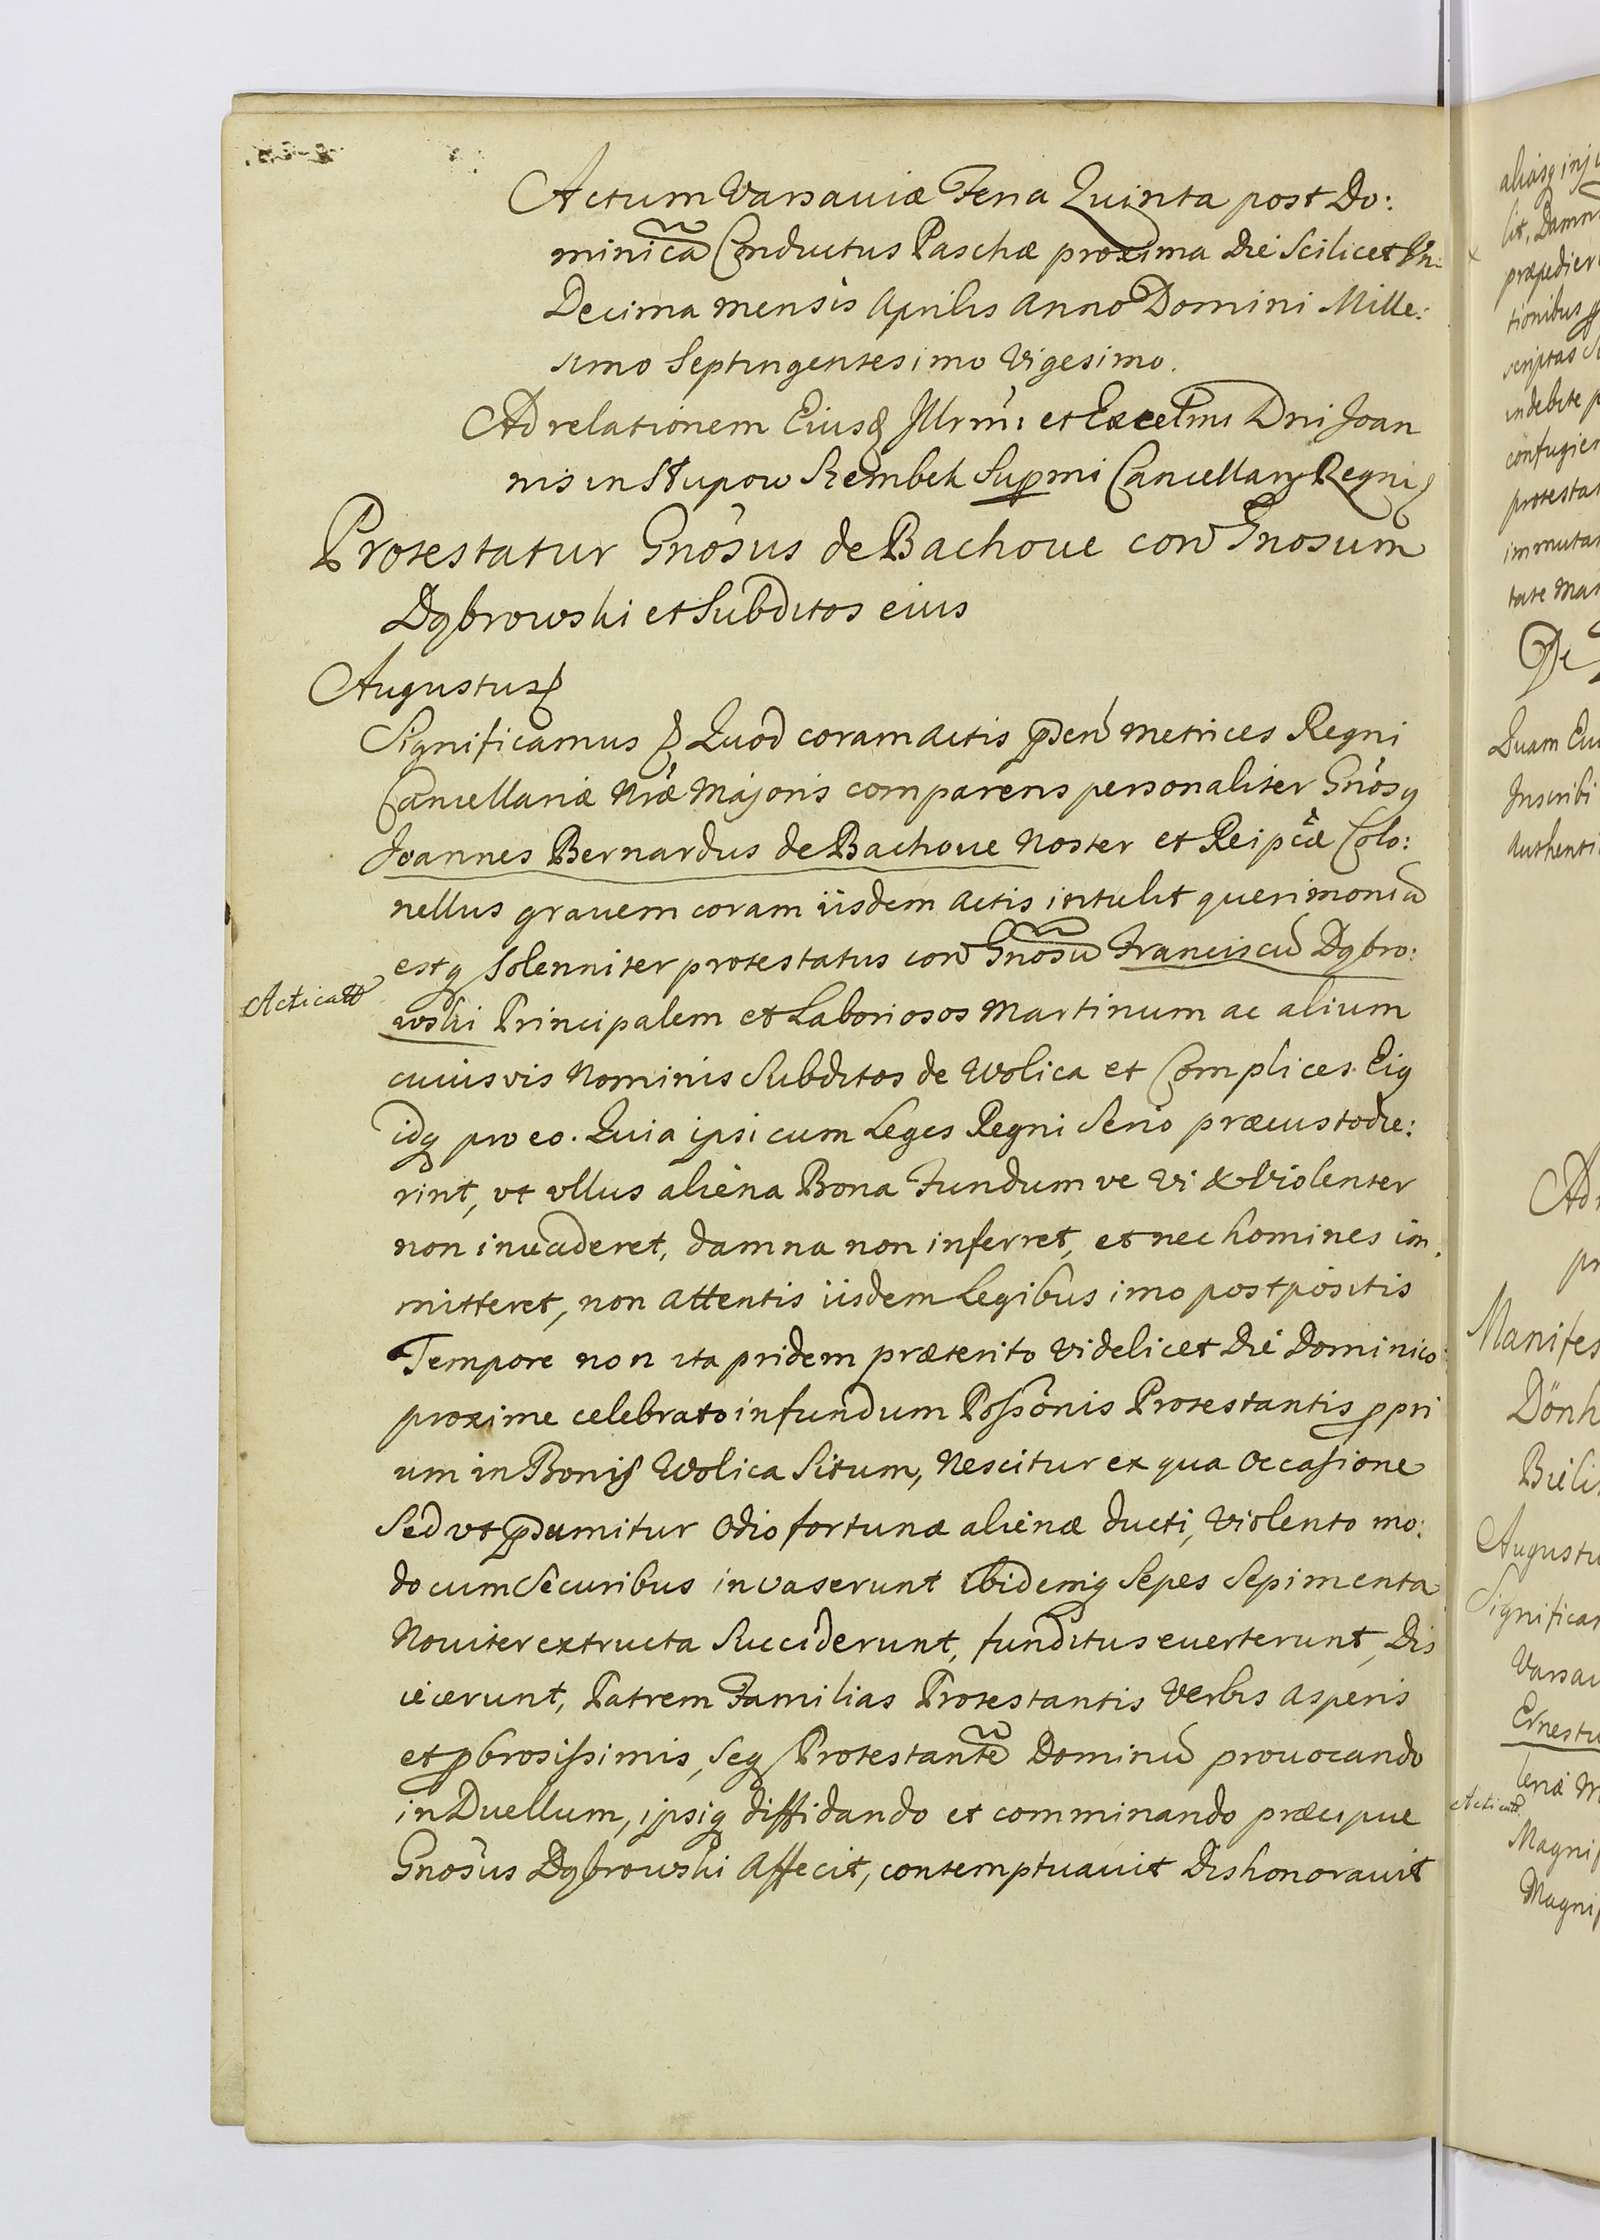 Actum Varsaviæ Feria Quinta post Do:
minicã Conductus Paschæ proxima Die Scilicet Vn:
Decima mensis Aprilis Anno Domini Mille:
simo Septingentesimo Vigesimo.
Ad relationem Eiusd Illrmi et Excelmi Dni Joan
nis in Słupow Szembek Suprmi Cancellarÿ Regni
Protestatur Gnosus de Bachoue con Gnosum
Dąbrowski et Subditos eius
Augustus
Significamus Quod coram Actis pñ Metrices Regni
Cancellariæ Nræ Majoris comparens personaliter Gnosq
Joannes Bernardus de Bachoue Noster et Reipcæ Colo:
nellus grauem coram iisdem Actis intulit querimoniã
estq solenniter protestatus con Gnosũ Franciscũ Dąbro:
Acticatt
wski Principalem et Laboriosos Martinum ac alium
cuiusvis Nominis Subditos de Wolica et Complices Eiq
idq pro eo. Quia ipsi cum Leges Regni serio præcustodie:
rint, vt vllus aliena Bona Fundum ve Vi & Violenter
non inuaderet, damna non inferret, et nec homines im:
mitteret, non attentis iisdem Legibus imo postpositis
Tempore non ita pridem præterito Videlicet Die Dominico
proxime celebrato in fundum Possonis Protestantis ppri
um in Bonis Wolica Situm, Nescitur ex qua Occasione
Sed vt psumitur Odio fortunæ alienæ ducti, Violento mo:
do cum Securibus invaserunt ibidemq Sepes Sepimenta
Nouiter extructa Succiderunt, funditus euerterunt, Dis
iecerunt, Patrem Familias Protestantis Verbis Asperis
et pbrosissimis, seq Protestantẽ Dominũ prouocando
in Duellum, ipsiq diffidando et comminando præcipue
Gnosus Dąbrowski Affecit, contemptuauit Dishonorauit
aliasq inj
lit, Damn
præpedier
tionibus
scriptas
indebite p
confugien
protestat
immutan
tate Man
De
Quam Eu
Inscribi
Authenti
Ad
pr
Manifes
Dönh
Bieli
Augustu
Significam
Varsau
Ernestu
Acticatt
Magnif
Magnif